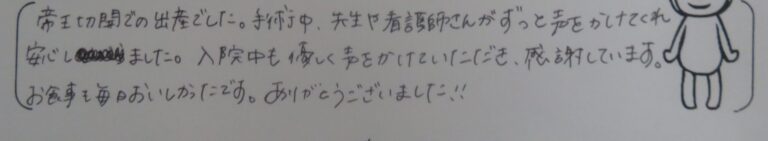 帝王切開での出産でした。手術中、先生や看護師さんがずっと声をかけてくれ
安心しました。入院中も優しく声をかけていただき、感謝しています。
お食事も毎日おいしかったです。ありがとうございました!!